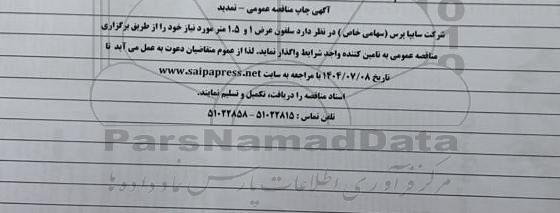 آگهی چاپ مناقصه عمومی - تمدید
شرکت سایپا پرس (سهامی خاص) در نظر دارد سلفون عرض ۱ و ۱.۵ متر مورد نیاز خود را از طریق برگزاری
مناقصه عمومی به تامین کننده واجد شرایط واگذار نماید. لذا از عموم متقاضیان دعوت به عمل می آید تا
تاریخ ۱۴۰۴/۰۷/۰۸ با مراجعه به سایت www.saipapress.net
اسناد مناقصه را دریافت، تکمیل و تسلیم نمایند.
تلفن تماس : ۵۱۰۲۲۸۱۵ - ۵۱۰۲۲۸۵۸
ParsNamadData
مرکز فرآوری اطلاعات پارس نماد داده ها